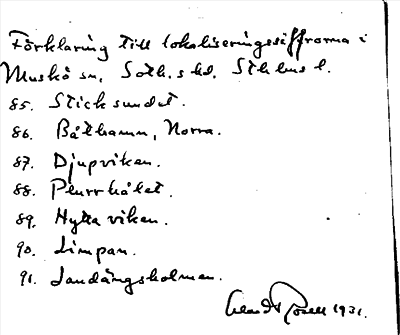 Förklaring till lokaliseringssiffrorna i
Muskö sn, Soth.s hd. Sthlms l.
85. Sticksundet.
86. Båthamn, Norra.
87. Djupviken.
88. Plurrhålet.
89. Hyttaviken.
90. Limpan.
91. Landängsholmen.
1931.